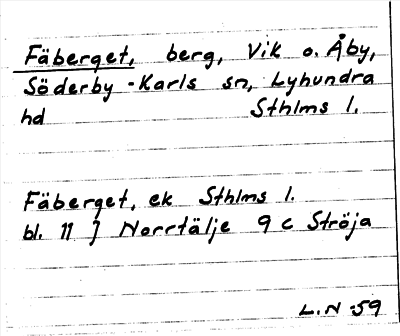 Fäberget, berg, Vik o. Åby,
Söderby-Karls sn, Lyhundra
hd Sthlms l.
Fäberget, ek Sthlms l.
bl. 11 } Norrtälje 9 c Ströja
L.N -59